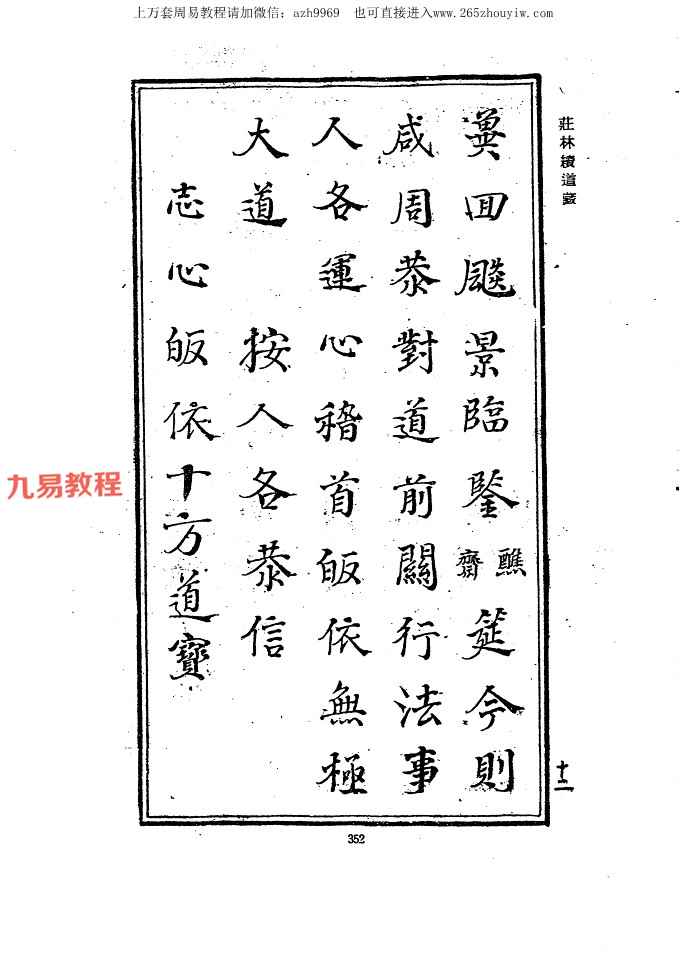 上万套周易教程请加微信：azh9969　也可直接进入www.265zhouyiw.com
莊林續道藏
冀回飈景臨鑒醮齋筵今則
咸周恭對道前關行法事
人各運心稽首皈依無極
大道　按人各恭信
志心皈依十方道寳
十二
九易教程
352